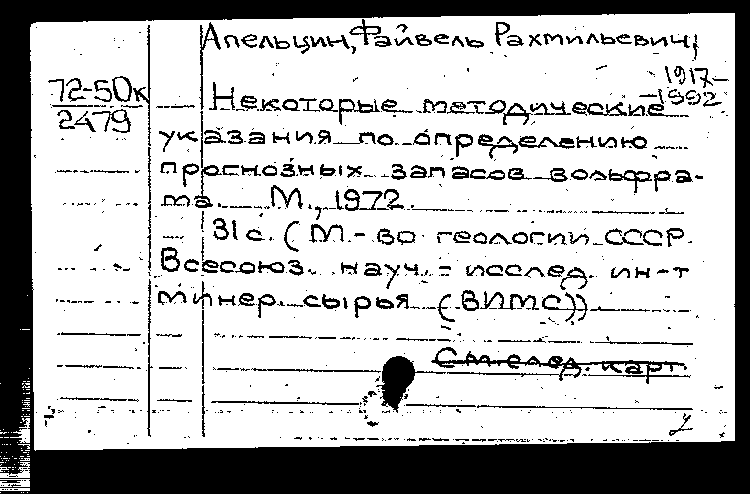 Апельцин, Файвель Рахмильевич,
1917-
-1992
72-50к
2479
Некоторые методические
указания по определению
прогнозных запасов вольфра-
ма. М., 1972.
31 с. (М-во геологии СССР.
Всесоюз. науч.-исслед. ин-т
минер. сырья (ВИМС))
См. след. карт.